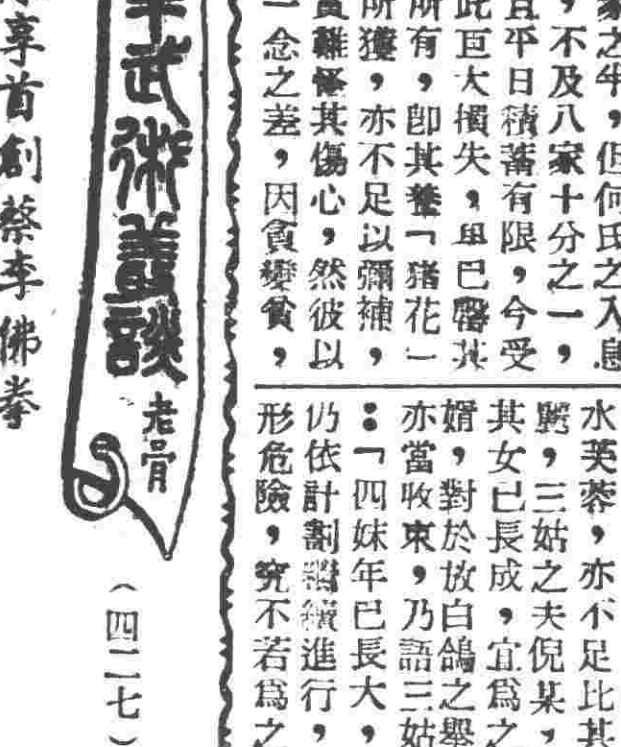 家之牛，但何氏之入息
，不及八家十分之一，
且平日積蓄有限，今受
此巨大損失，早已罄其
所有，即其養「猪花」
所獲，亦不足以彌補，
難怪其傷心，然彼以
一念之差，因貪變貧，
水芙蓉，亦不足比其
，三姑之夫倪某，
其女已長成，宜爲之
婿，對於放白鴿之舉
亦當收束，乃語三姑
：「四妹年已長大，
仍依計劃繼續進行，
形危險，究不若爲之
武術叢談
老骨
（四二七）
享首創蔡李佛拳